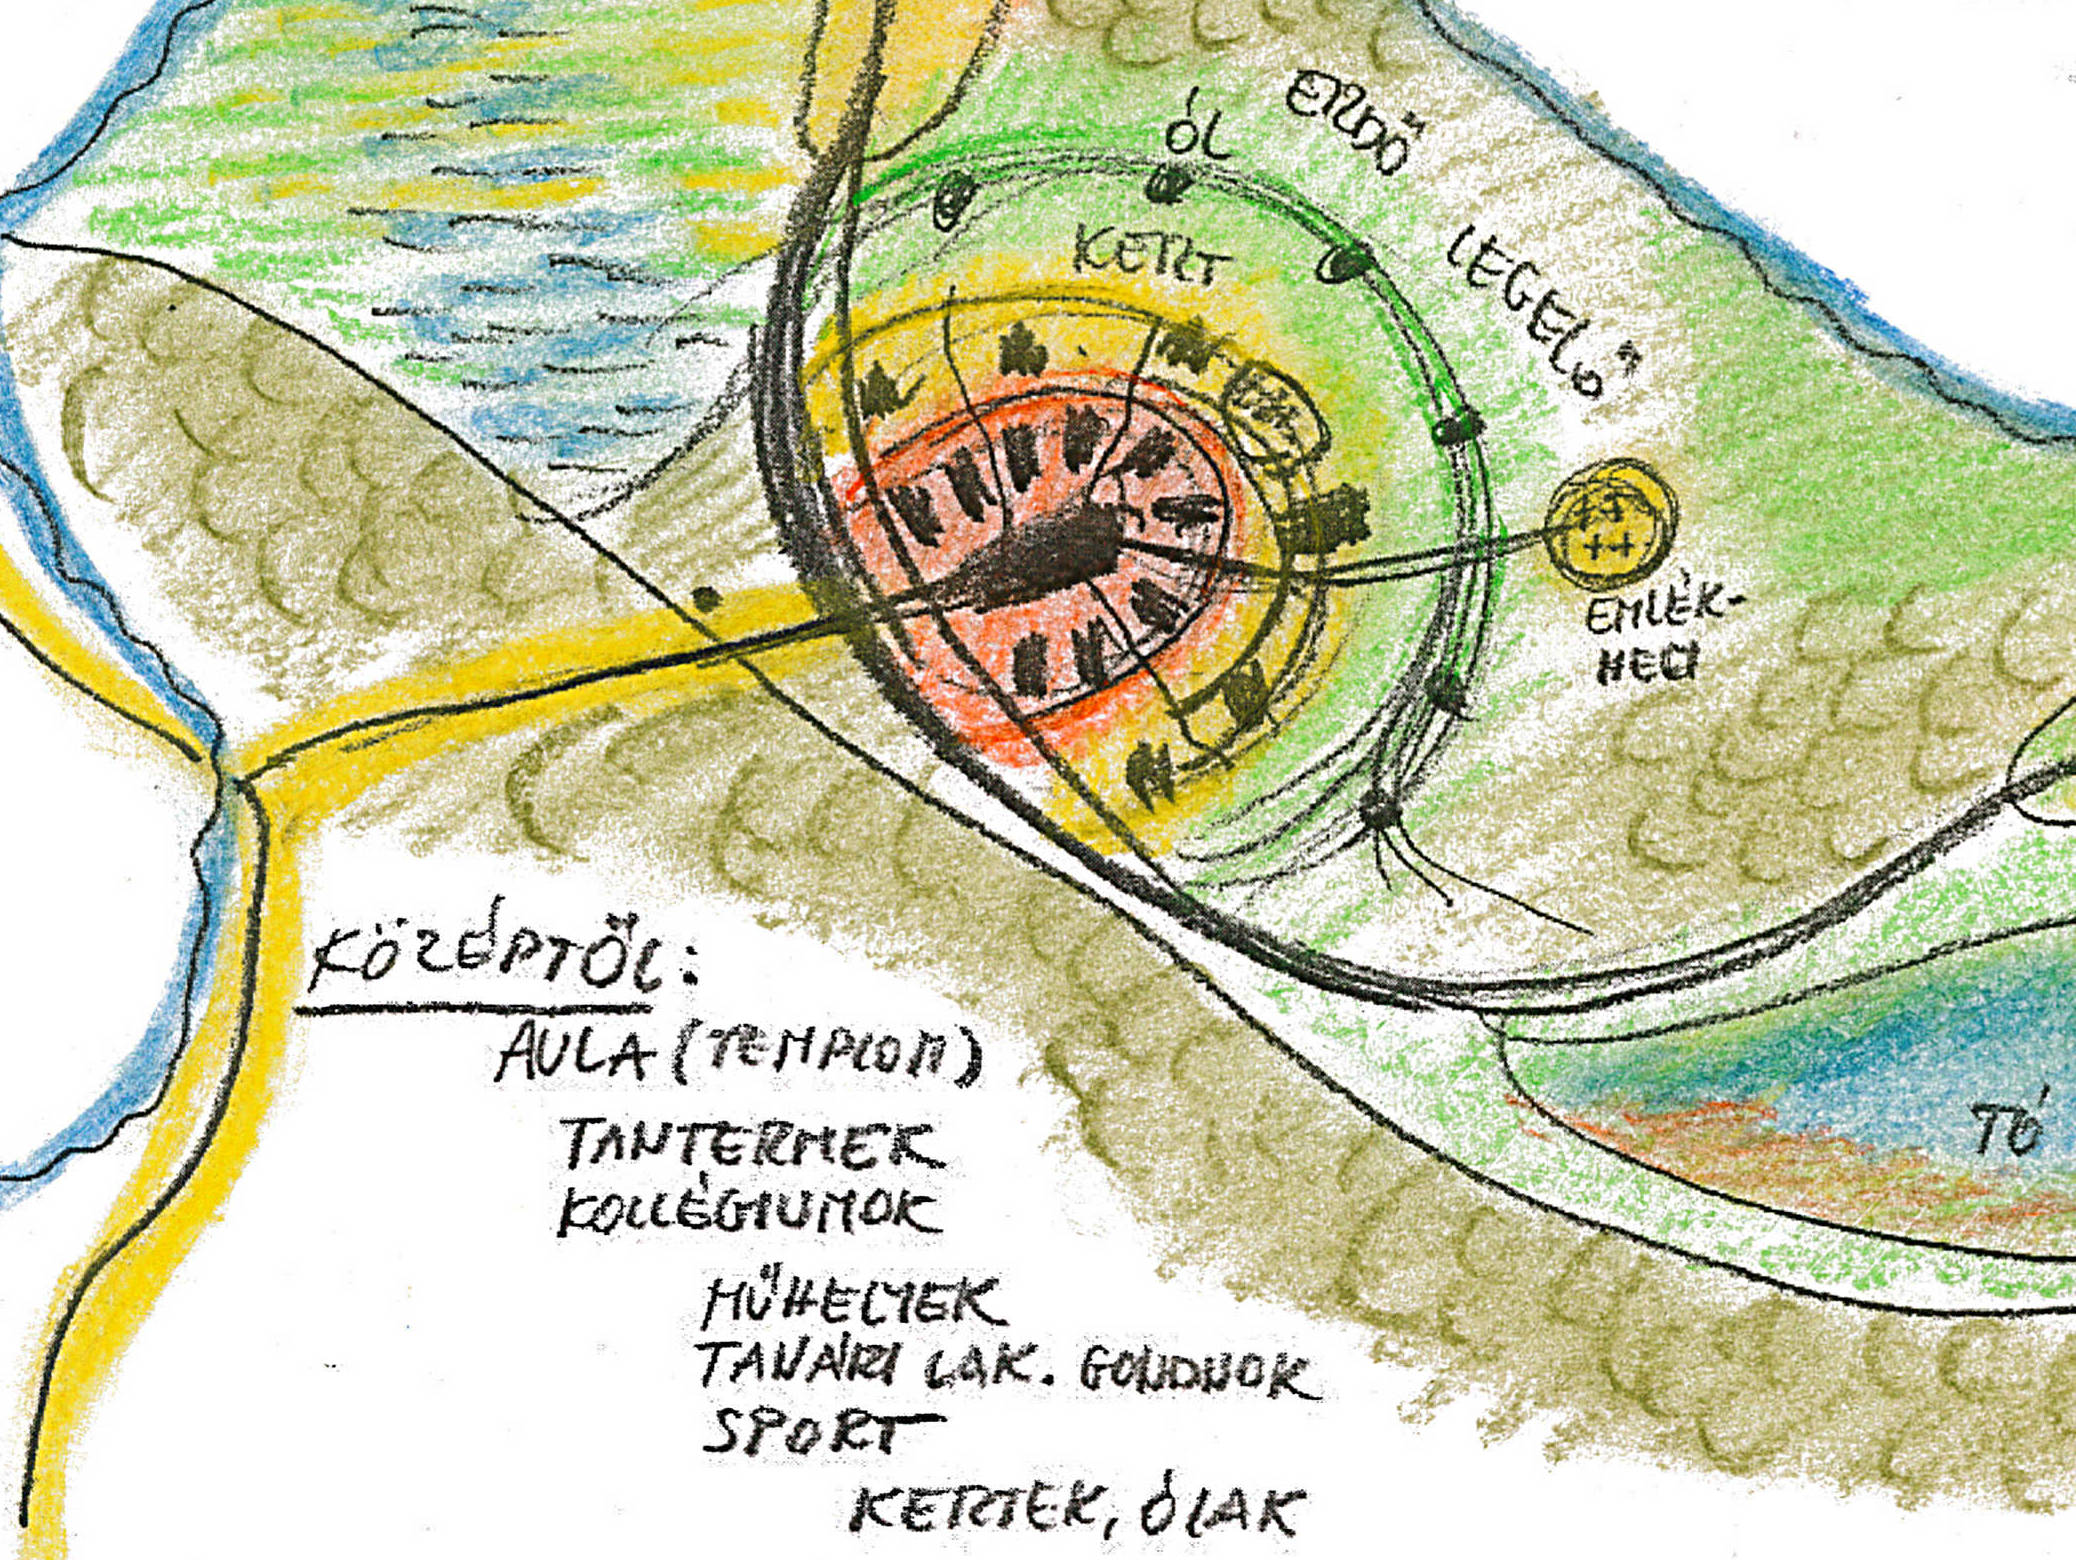 ERDŐ
ÓL
KERT
LEGELŐ
EMLÉK-
HELY
TÓ
KÖZÉPTŐL:
AULA (TEMPLOM)
TANTERMEK
KOLLÉGIUMOK
MŰHELYEK
TANÁRI LAK. GONDNOK
SPORT
KERTEK, ÓLAK